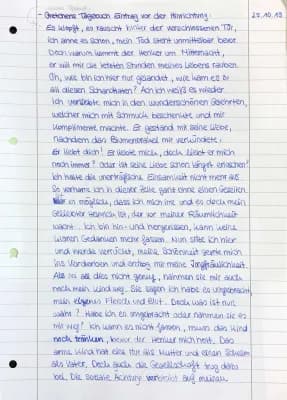 - Gretchens Tagebuch Eintrag vor der Hinrichtung: 29.10.19
Es klopft, es rauscht hinter der verschlossenen Tür,
Ich ahne es schon, mein Tod steht unmittelbar bevor.
Doch warum kommt der Henker um Mitternacht,
er will mir die letzten Stunden meines Lebens rauben.
Oh, wie bin ich hier nur gelandet, wie kam es zu
all diesen Schandtaten? Ach ich weiß es wieder.
Ich verliebte mich in den wunderschönen Gelehrten,
welcher mich mit Schmuck beschenkte und mir
Komplimente machte. Er gestand mir seine Liebe,
nachdem das Blumenrätsel mit verkündete:
Er liebt dich! Er liebte mich, doch liebt er mich
noch immer? Oder ist seine Liebe schon längst erloschen?
Ich halte die unerträgliche Einsamkeit nicht mehr aus
So verharre ich in dieser Zelle ganz ohne einen Gesellen.
es möglich, dass ich mich irre und es doch mein
Geliebter Heinrich ist, der vor meiner Räumlichkeit
wacht. Ich bin hin- und hergerissen, kann keine
klaren Gedanken mehr fassen. Nun sitze ich hier
und werde verrückt, meine Schönheit geriet mich
ins Verderben und entzog mir meine Jungfräulichkeit.
Als sei all dies nicht genug, nahmen sie mir auch
noch mein Kind weg. Sie sagen ich habe es umgebracht,
mein eigenes Fleisch und Blut. Doch was ist nun
wahr? Habe ich es umgebracht oder nahmen sie es
mir weg? Ich kann es nicht fassen, muss das Kind
noch tränken, bevor der Henker mich holt. Das
arme Kind hat eine Tür als Mutter und einen Schelm
als Vater. Doch auch die Gesellschaft trug dazu
bei. Die soziale Ächtung